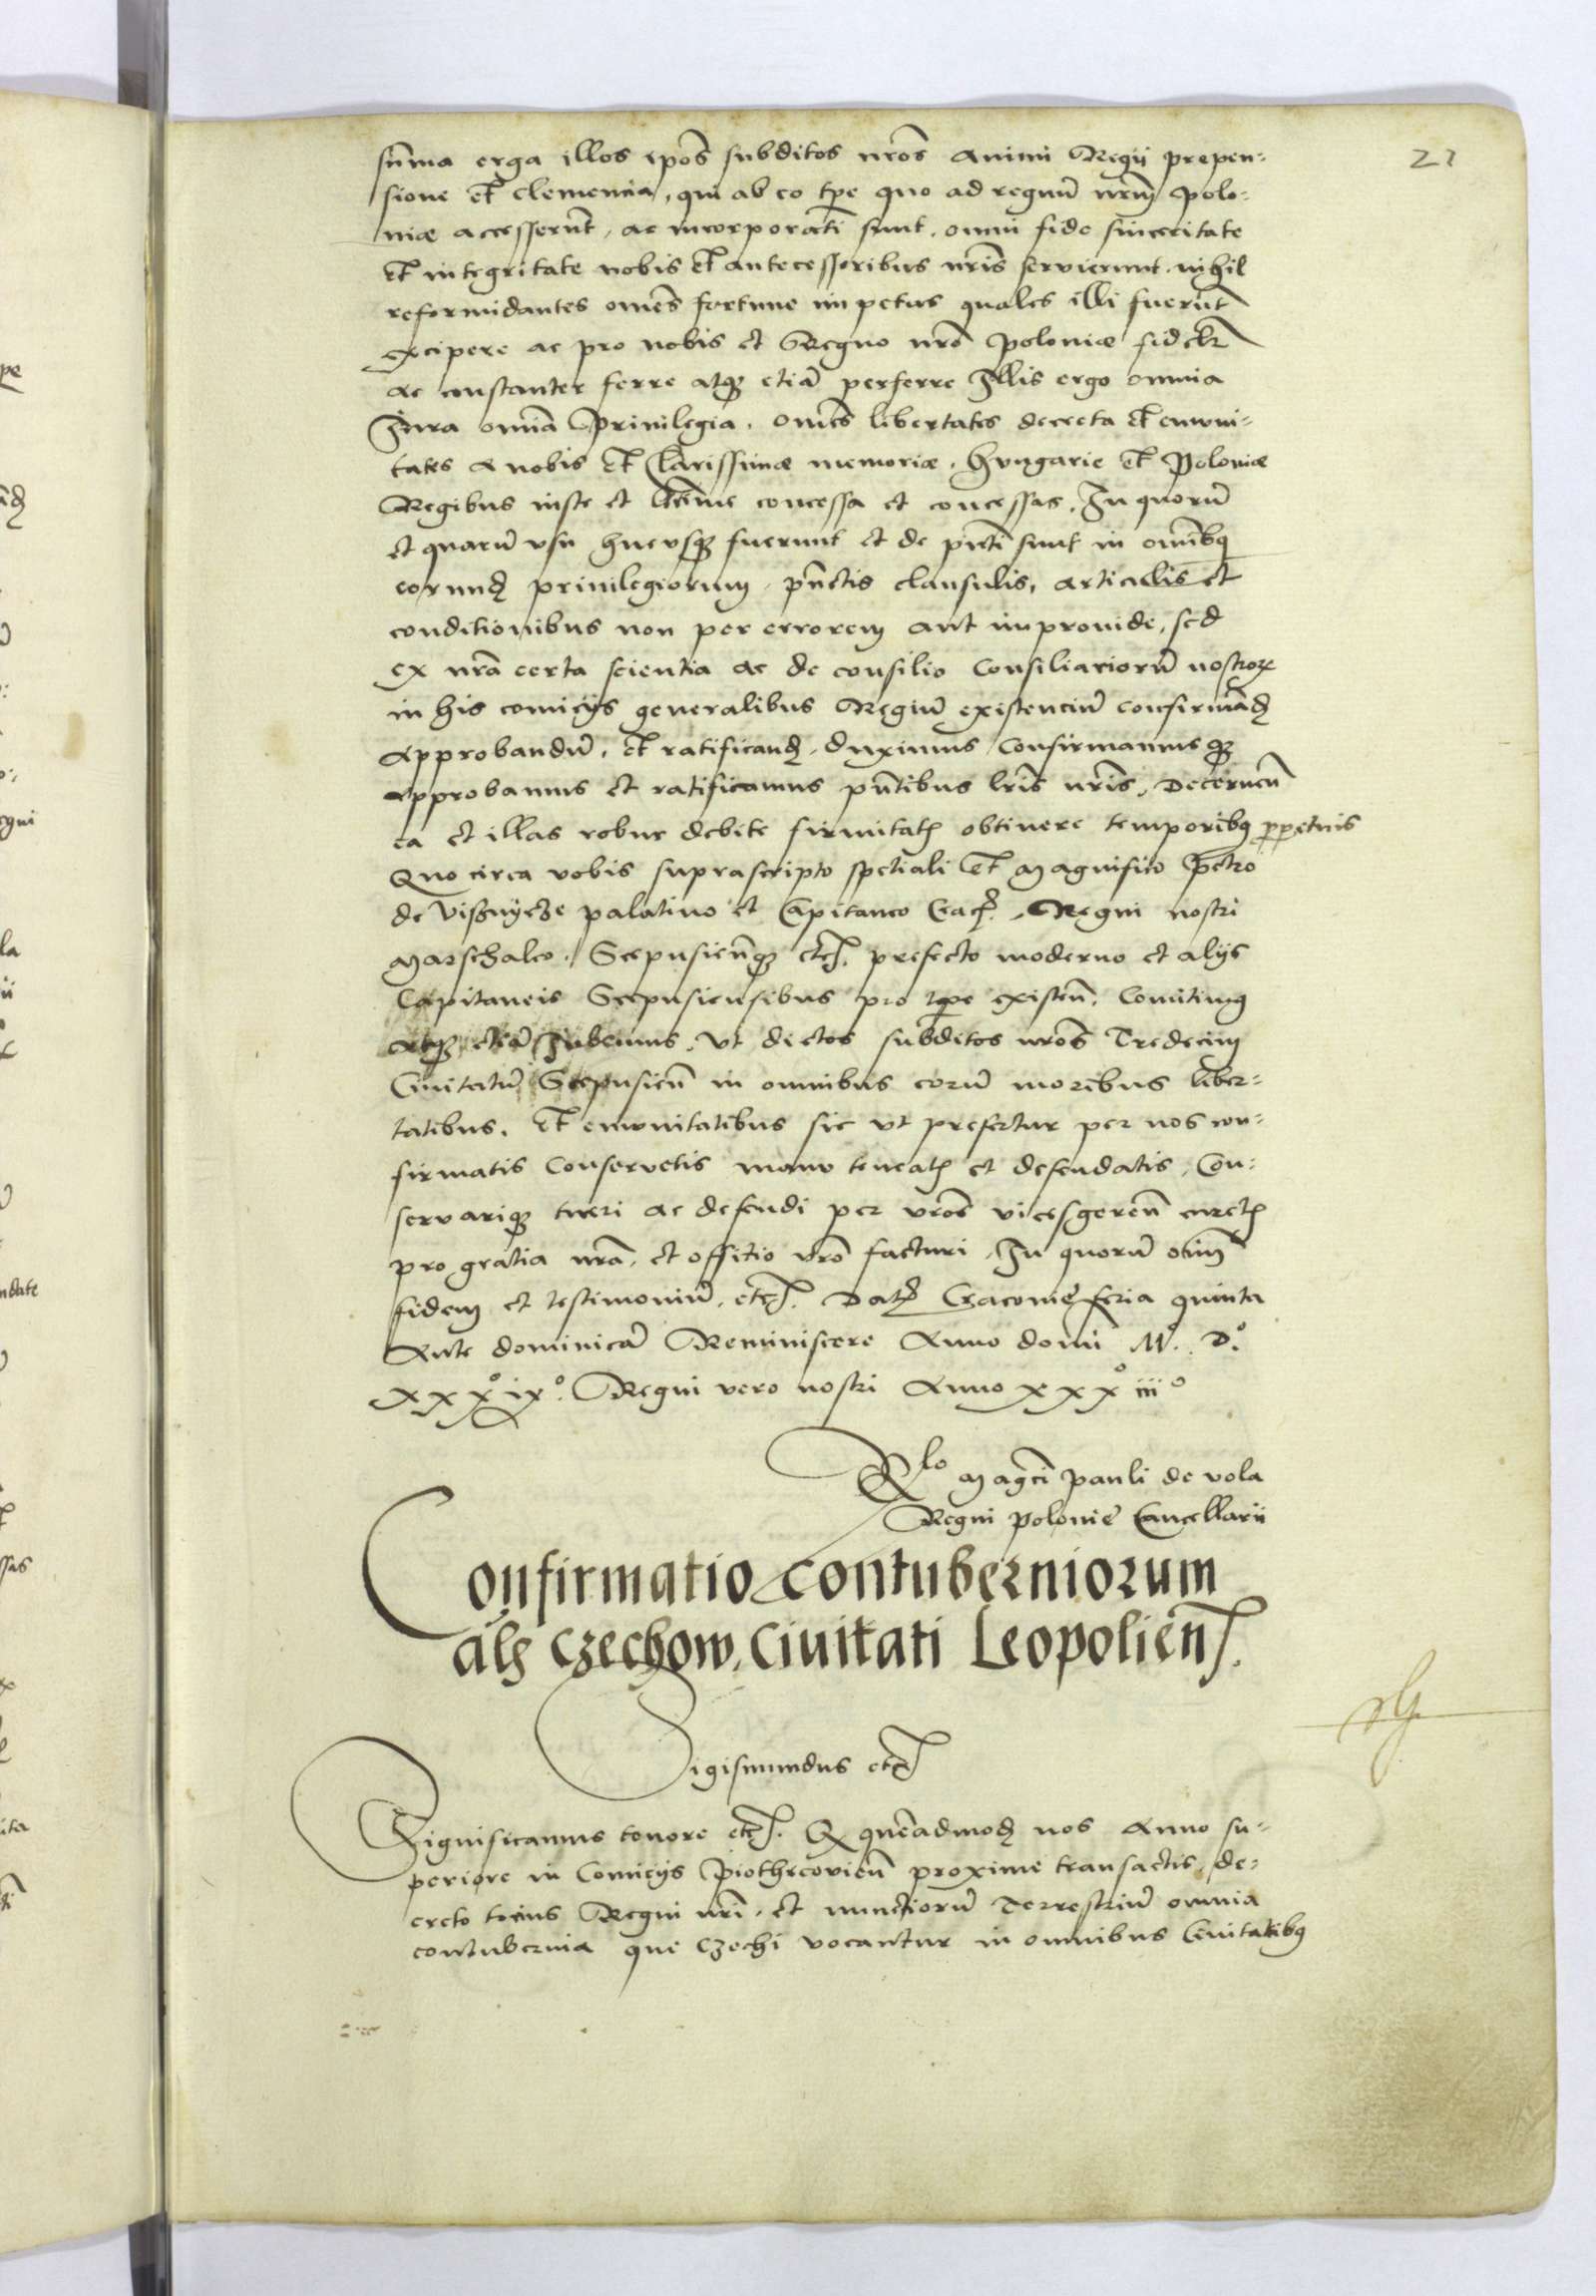 21
sum̄a erga illos ip̄os subditos nr̄os animi Regii propen-
sione et clementia, qui ab eo tp̄e quo ad regnū nr̄m Polo-
niæ accesserūt, ac incorporati sunt, omni fide sinceritate
et integritate nobis et antecessoribus nr̄is servierunt. nihil
reformidantes om̄es fortune impetus quales illi fuerūt
excipere ac pro nobis et Regno nr̄o Poloniæ fidelr̄
ac constanter ferre atq̄ꝫ etiā perferre Illis ergo omnia
Jura om̄ia Privilegia. om̄es libertates decreta et emuni-
tates a nobis et Clarissimæ memoriæ. Hungarie et Poloniæ
Regibus iuste et concessa et concessas. In quorū
et quarū usu hucusqꝫ fuerunt et de pn̄ti sunt in om̄ibꝰ
eorundꝫ privilegiorum, pūnctis clausulis, articulis et
conditionibus non per errorem aut improuide, sed
ex nr̄a certa scientia ac de consilio Consiliariorū nostroꝝ
in his comicijs generalibus Regniū existenciū confirmādꝫ
approbandū. et ratificandꝫ duximus Confirmamusqꝫ
approbamus et ratificamus pn̄tibus lr̄is nr̄is, Decernen̄
ea et illas robur debite firmitatꝭ obtinere temporibꝰ ꝑpetuis
Quo circa vobis suprascripto spetiali et Magnifico Petro
de Viszniycze palatino et Capitaneo Crac̄ꝭ, Regni nostri
Marschalco. Scepusien̄qꝫ etcꝭ. prefecto moderno et alijs
Capitaneis Scepusiensibus pro tp̄e existen̄. Comittimꝰ
atqꝫ etiā Jubemus. Ut dictos subditos nr̄os Tredecim
Ciuitatū Scepusien̄ in omnibus eorū moribus liber-
tatibus. et emunitatibus sic ut prefertur per nos con-
firmatis Conservetis manu teneatꝭ et defendatis, Con-
servariqꝫ tueri ac defendi per vr̄os vicesgeren̄ curetꝭ
pro gratia nr̄a, et offitio vr̄o facturi. In quorū om̄iū
fidem et testimoniū. etcꝭ. Datꝭ Cracovie feria quinta
Ante dominicā Reminiscere Anno domi M. D.º
xxxº ixº. Regni vero nostri Anno xxxº iiiº
Rlo Magci Pauli de Vola
Regni Polonie Cancellarii
Confirmatio contuberniorum
alꝫ Czechow, Ciuitati Leopolien̄ꝭ.
Sigismundus etcꝭ
Significamus tenore etcꝭ. Qꝫ quēadmodꝫ nos Anno su-
periore in Comicijs Piothrcovien̄ proxime transactis, de-
creto tocius Regni nr̄i. et nunctiorū Terrestriū omnia
contubernia que Czechi vocantur in omnibus Ciuitatibꝰ